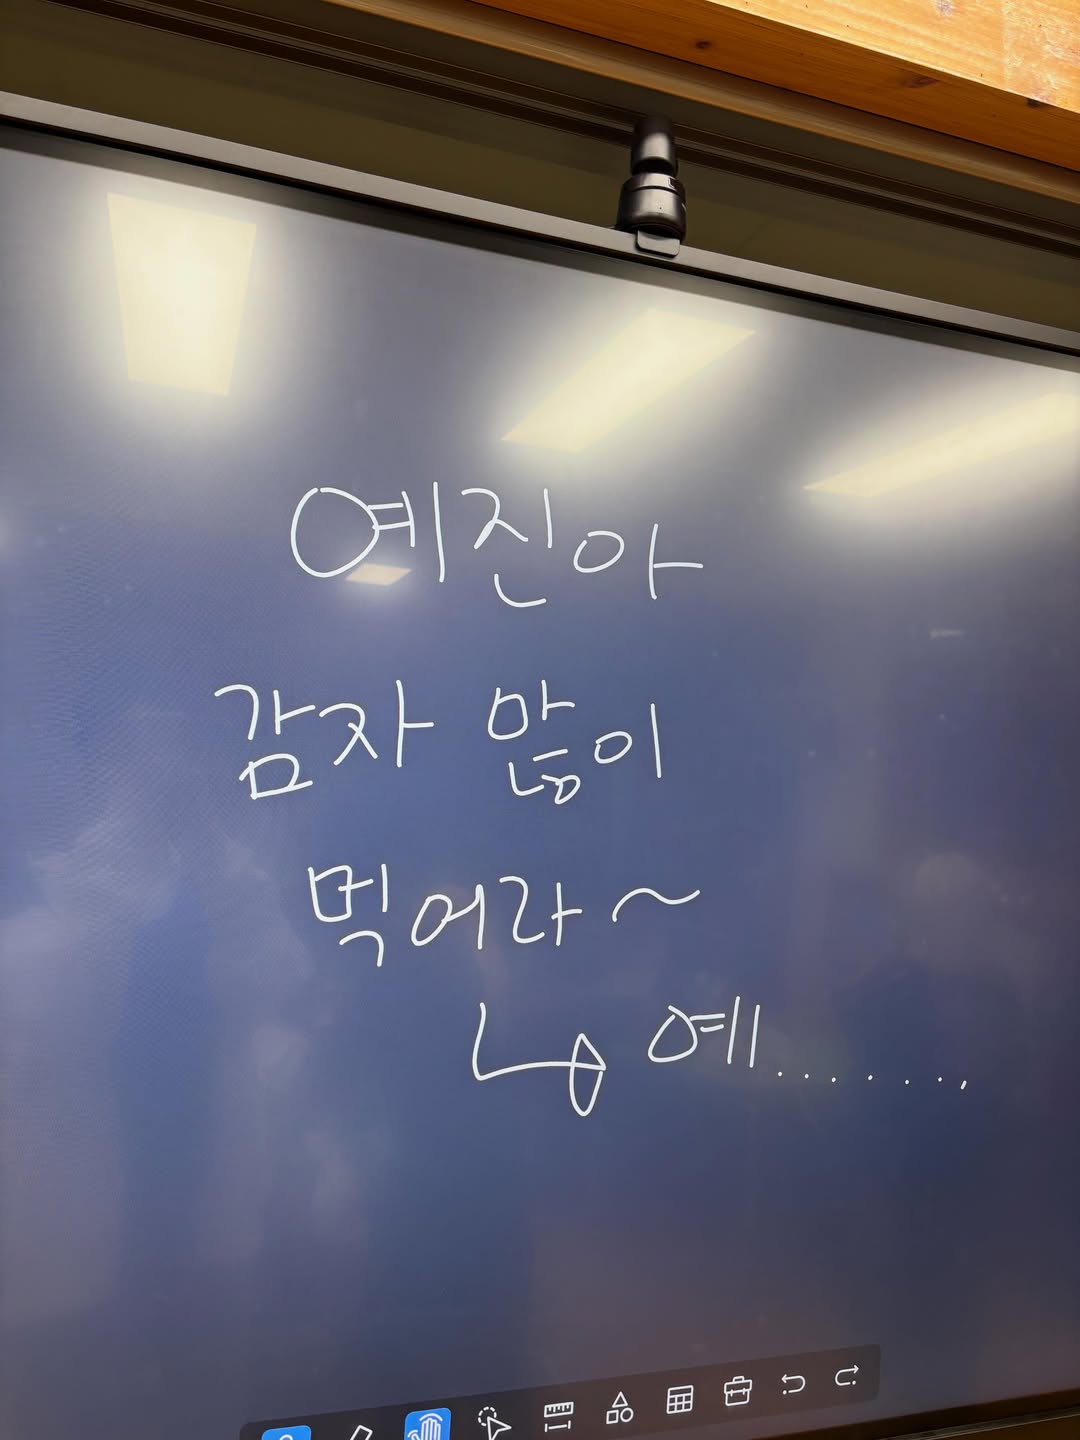 예진아
감자 많이
먹어라~
↳ 예.......